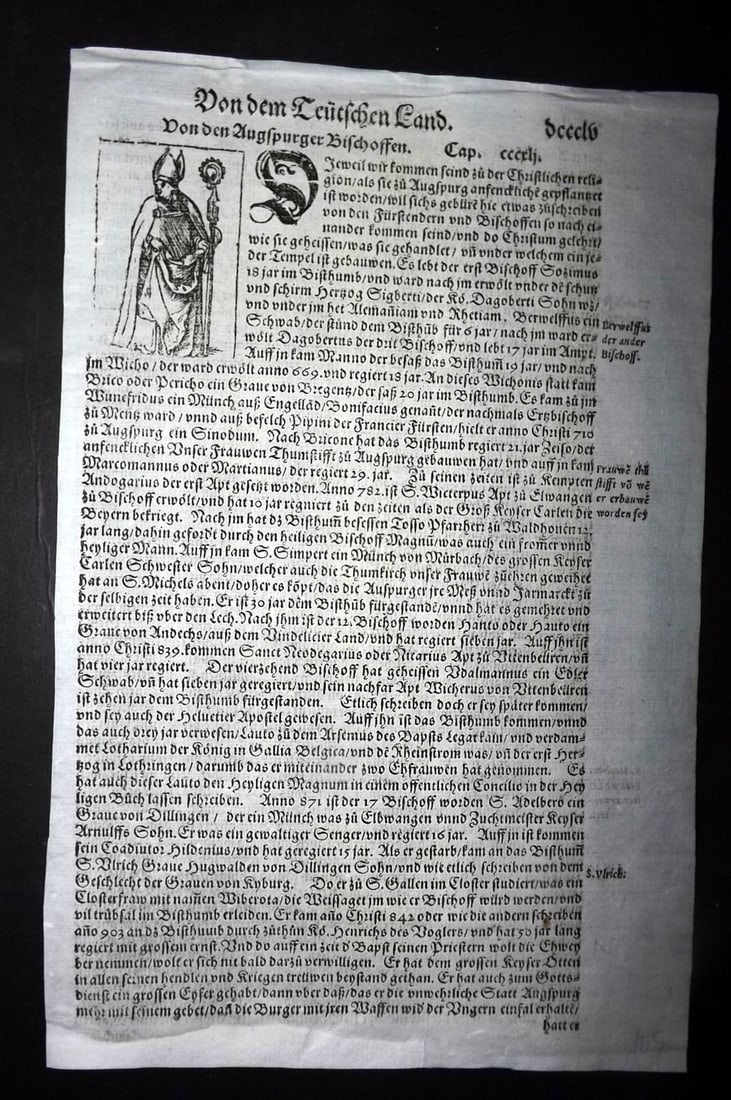 Von dem Teütschen Land.
dccclv
Von den Augspurger Bischoffen. Cap. ccccxlj.
Dieweil wir kommen seind zů der Christlichen reli-
gion/als sie zů Augspurg anfencklichē gepflantzet
ist worden/wil sichs gebürē hie etwas zůschreiben
von den Fürstendern vnd Bischoffen so nach ei-
nander kommen seind/vnd do Christum gelehrt/
wie sie geheissen/was sie gehandlet/vñ vnder welchem ein je-
der Tempel ist gebauwen. Es lebt der erst Bischoff Sozimus
18 jar im Bisthumb/vnd ward nach jm erwölt vnder dē schutz
vnd schirm Hertzog Sigberti/der Kö. Dagoberti Sohn wz/
vnd vnder jm het Alemañiam vnd Rhetiam, Berwelffus ein
Schwab/der stůnd dem Bisthůb für 6 jar/nach jm ward er-
wölt Dagobertus der drit Bischoff/vnd lebt 17 jar im Ampt.
Auff jn kam Manno der besaß das Bisthum̄ 19 jar/vnd nach
Berwelffus
der ander
Bischoff.
jm Wicho/der ward erwölt anno 669.vnd regiert 18 jar. An dieses Wichonis statt kam
Brico oder Pericho ein Graue von Bregentz/der saß 20 jar im Bisthumb. Es kam zů jm
Wunefridus ein Münch auß Engellād/Bonifacius genañt/der nachmals Ertzbischoff
zů Mentz ward/vnnd auß befelch Pipini der Francier Fürsten/hielt er anno Christi 710
zů Augspurg ein Sinodum. Nach Bricone hat das Bisthumb regiert 21.jar Zeiso/der
anfencklichen Vnser Frauwen Thumstifft zů Augspurg gebauwen hat/vnd auff jn kam
Marcomannus oder Martianus/der regiert 29. jar. Zů seinen zeiten ist zů Kempten
Andogarius der erst Apt gesetzt worden. Anno 782.ist S. Wicterpus Apt zů Elwangen
zů Bischoff erwölt/vnd hat 10 jar regniert zů den zeiten als der Groß Keyser Carlen die
Beyern bekriegt. Nach jm hat dz Bisthum̄ besessen Tosso Pfarrherr zů Waldhouen 12.
jar lang/dahin gefordt durch den heiligen Bischoff Magnū/was auch ein from̄er vnnd
heyliger Mann. Auff jn kam S. Simpert ein Münch von Můrbach/des grossen Keyser
Carlen Schwester Sohn/welcher auch die Thumkirch vnser Frauwē zůehren geweihet
hat an S. Michels abent/doher es kōpt/das die Auspurger jre Meß vnnd Jarmarckt zů
der selbigen zeit haben. Er ist 30 jar dem Bisthůb fürgestandē/vnnd hat es gemehret vnd
erweitert biß vber den Lech. Nach jhm ist der 12. Bischoff worden Hanto oder Hauto ein
Graue von Andechs/auß dem Vindelicier Land/vnd hat regiert sieben jar. Auff jhn ist
anno Christi 839.kommen Sanct Neodegarius oder Nitarius Apt zů Vttenbeüren/vñ
hat vier jar regiert. Der vierzehend Bischoff hat geheissen Vdalmannus ein Edler
Schwab/vñ hat sieben jar geregiert/vnd sein nachfar Apt Wicherus von Vttenbeüren
ist zehen jar dem Bisthumb fürgestanden. Etlich schreiben doch er sey später kommen/
vnd sey auch der Heluetier Apostel gewesen. Auff jhn ist das Bisthumb kommen/vnnd
das auch drey jar verwesen/Lauto zů dem Arsenius des Bapsts Legat kam/vnd verdam-
met Lotharium der König in Gallia Belgica/vnd dē Rheinstrom was/vñ der erst Her-
tzog in Lothringen/darumb das er miteinander zwo Ehfrauwen hat genommen. Es
hat auch dieser Lauto den Heyligen Magnum in einem öffentlichen Concilio in der Hey
ligen Bůch lassen schreiben. Anno 871 ist der 17 Bischoff worden S. Adelbero ein
Graue von Dillingen/der ein Münch was zů Elbwangen vnnd Zuchtmeister Keyser
Arnulffs Sohn. Er was ein gewaltiger Senger/vnd regiert 16 jar. Auff jn ist kommen
sein Coadiutor Hildenius/vnd hat geregiert 15 jar. Als er gestarb/kam an das Bisthum̄
S. Vlrich Graue Hugwalden von Dillingen Sohn/vnd wie etlich schreiben von dem
Geschlecht der Grauen von Kyburg. Do er zů S. Gallen im Closter studiert/was ein
Closterfraw mit nam̄en Wiberota/die Weissaget jm wie er Bischoff würd werden/vnd
vil trübsal im Bisthumb erleiden. Er kam año Christi 842 oder wie die andern schreiben
año 903 an dz Bisthumb durch zůthůn Kö. Henrichs des Voglers/vnd hat 50 jar lang
regiert mit grossem ernst. Vnd do auff ein zeit d' Bapst seinen Priestern wolt die Ehwey
ber nemmen/wolt er sich nit bald darzů verwilligen. Er hat dem grossen Keyser Otten
in allen seinen hendlen vnd Kriegen trellwen beystand gethan. Er hat auch zum Gotts-
dienst ein grossen Eyfer gehabt/dann vber daß/das er die vnwehrliche Statt Augspurg
mehr mit seinem gebet/dañ die Burger mit jren Waffen wid' der Vngern einfal erhalte/
hatt er
Frauwē thū
stifft vō wē
er erbauwē
worden sey
S. Vlrich.